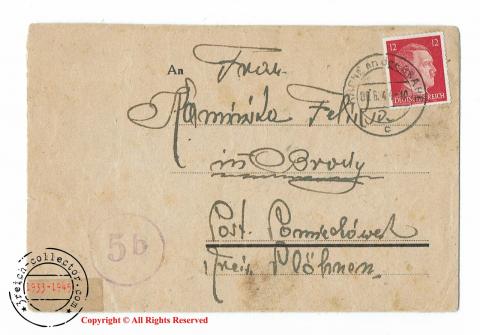 An Frau
Kaminska Feli
in Brody
Post. Pomiechówek
Kreis Plöhnen
12 12
DEUTSCHES REICH
c
5b
3reich-collector.com
1933-1945
Copyright © All Rights Reserved